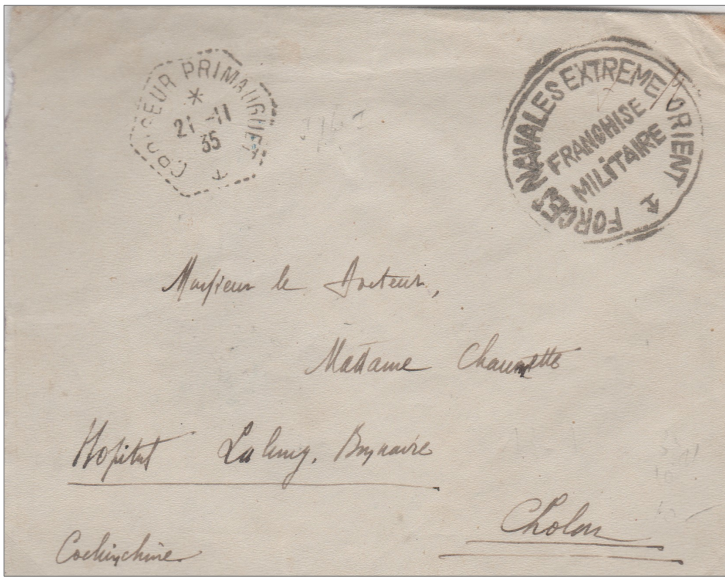 CROISEUR PRIMAUGUET
*
21-11
35
FORCES NAVALES EXTREME ORIENT
FRANCHISE
MILITAIRE
Monsieur le Docteur,
Madame Chaumette
Hopital Lalung. Bonnaire
Cholon
Cochinchine